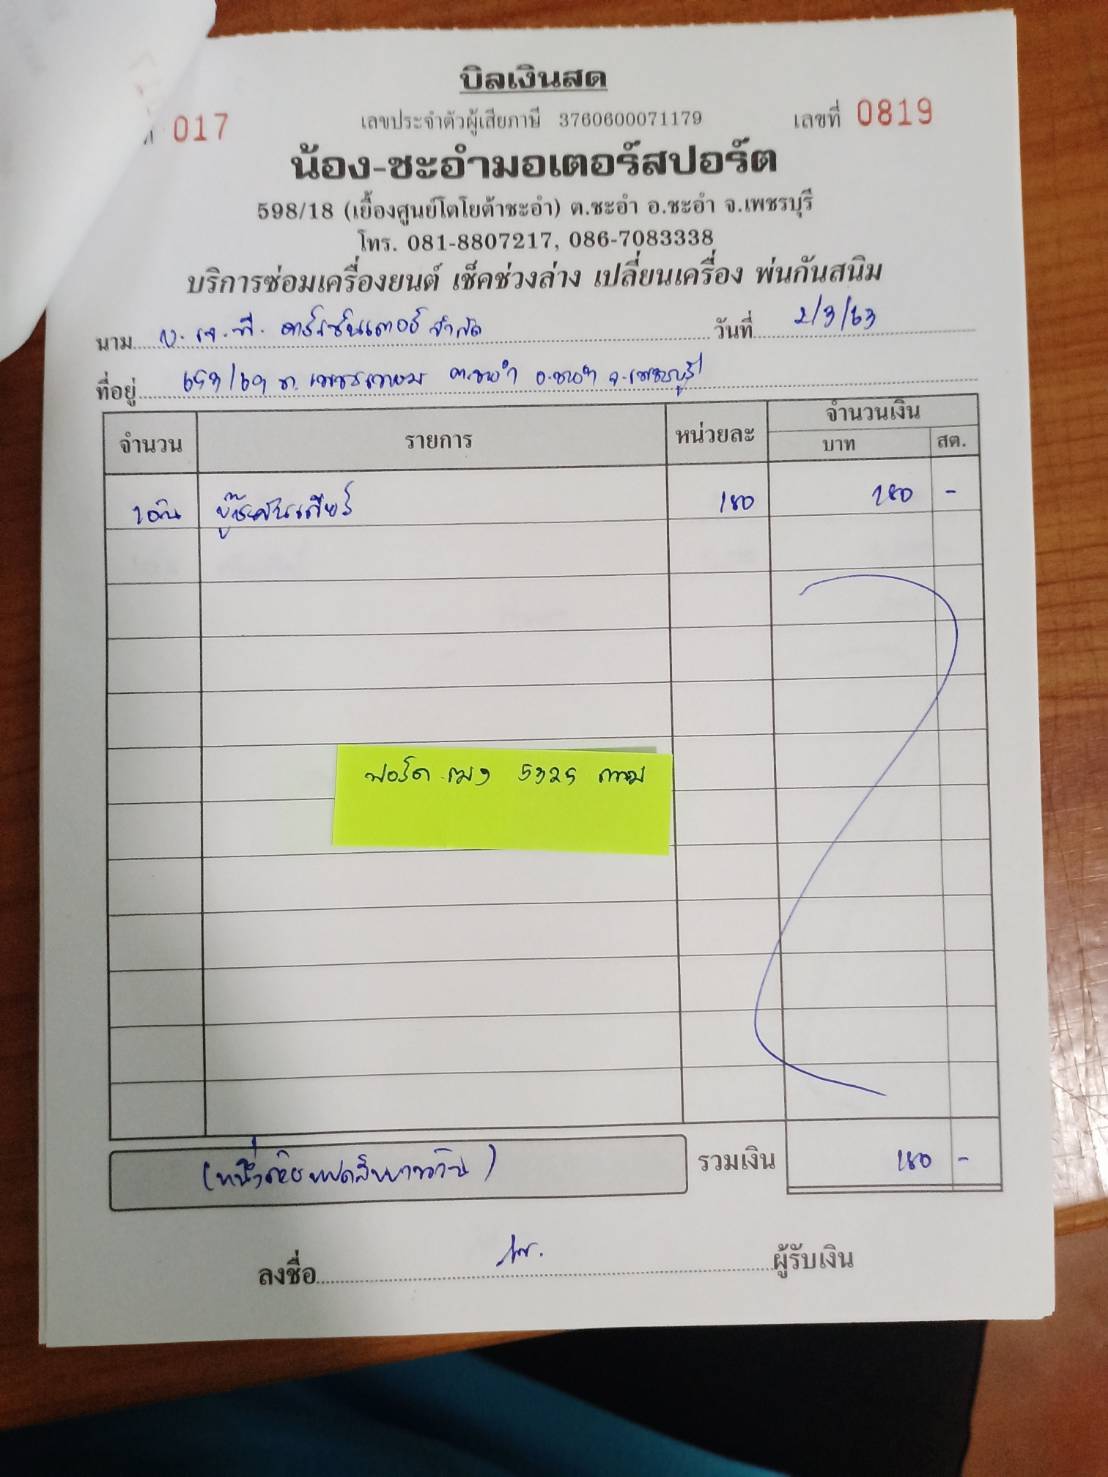 บิลเงินสด
017
เลขประจำตัวผู้เสียภาษี 3760600071179
เลขที่ 0819
น้อง-ชะอำมอเตอร์สปอร์ต
598/18 (เยื้องศูนย์โตโยต้าชะอำ) ต.ชะอำ อ.ชะอำ จ.เพชรบุรี
โทร. 081-8807217, 086-7083338
บริการซ่อมเครื่องยนต์ เช็คช่วงล่าง เปลี่ยนเครื่อง พ่นกันสนิม
นาม บ. เจ.พี. คาร์เซ็นเตอร์ จำกัด วันที่ 2/3/63
ที่อยู่ ถ. เพชรเกษม ต.ชะอำ อ.ชะอำ จ.เพชรบุรี
จำนวน รายการ หน่วยละ จำนวนเงิน
บาท สต.
1อัน บู๊ชคันเกียร์ 180 180 -
ฟอร์ด 5325 กทม
(หนึ่งร้อยแปดสิบบาทถ้วน) รวมเงิน 180 -
ลงชื่อ ผู้รับเงิน